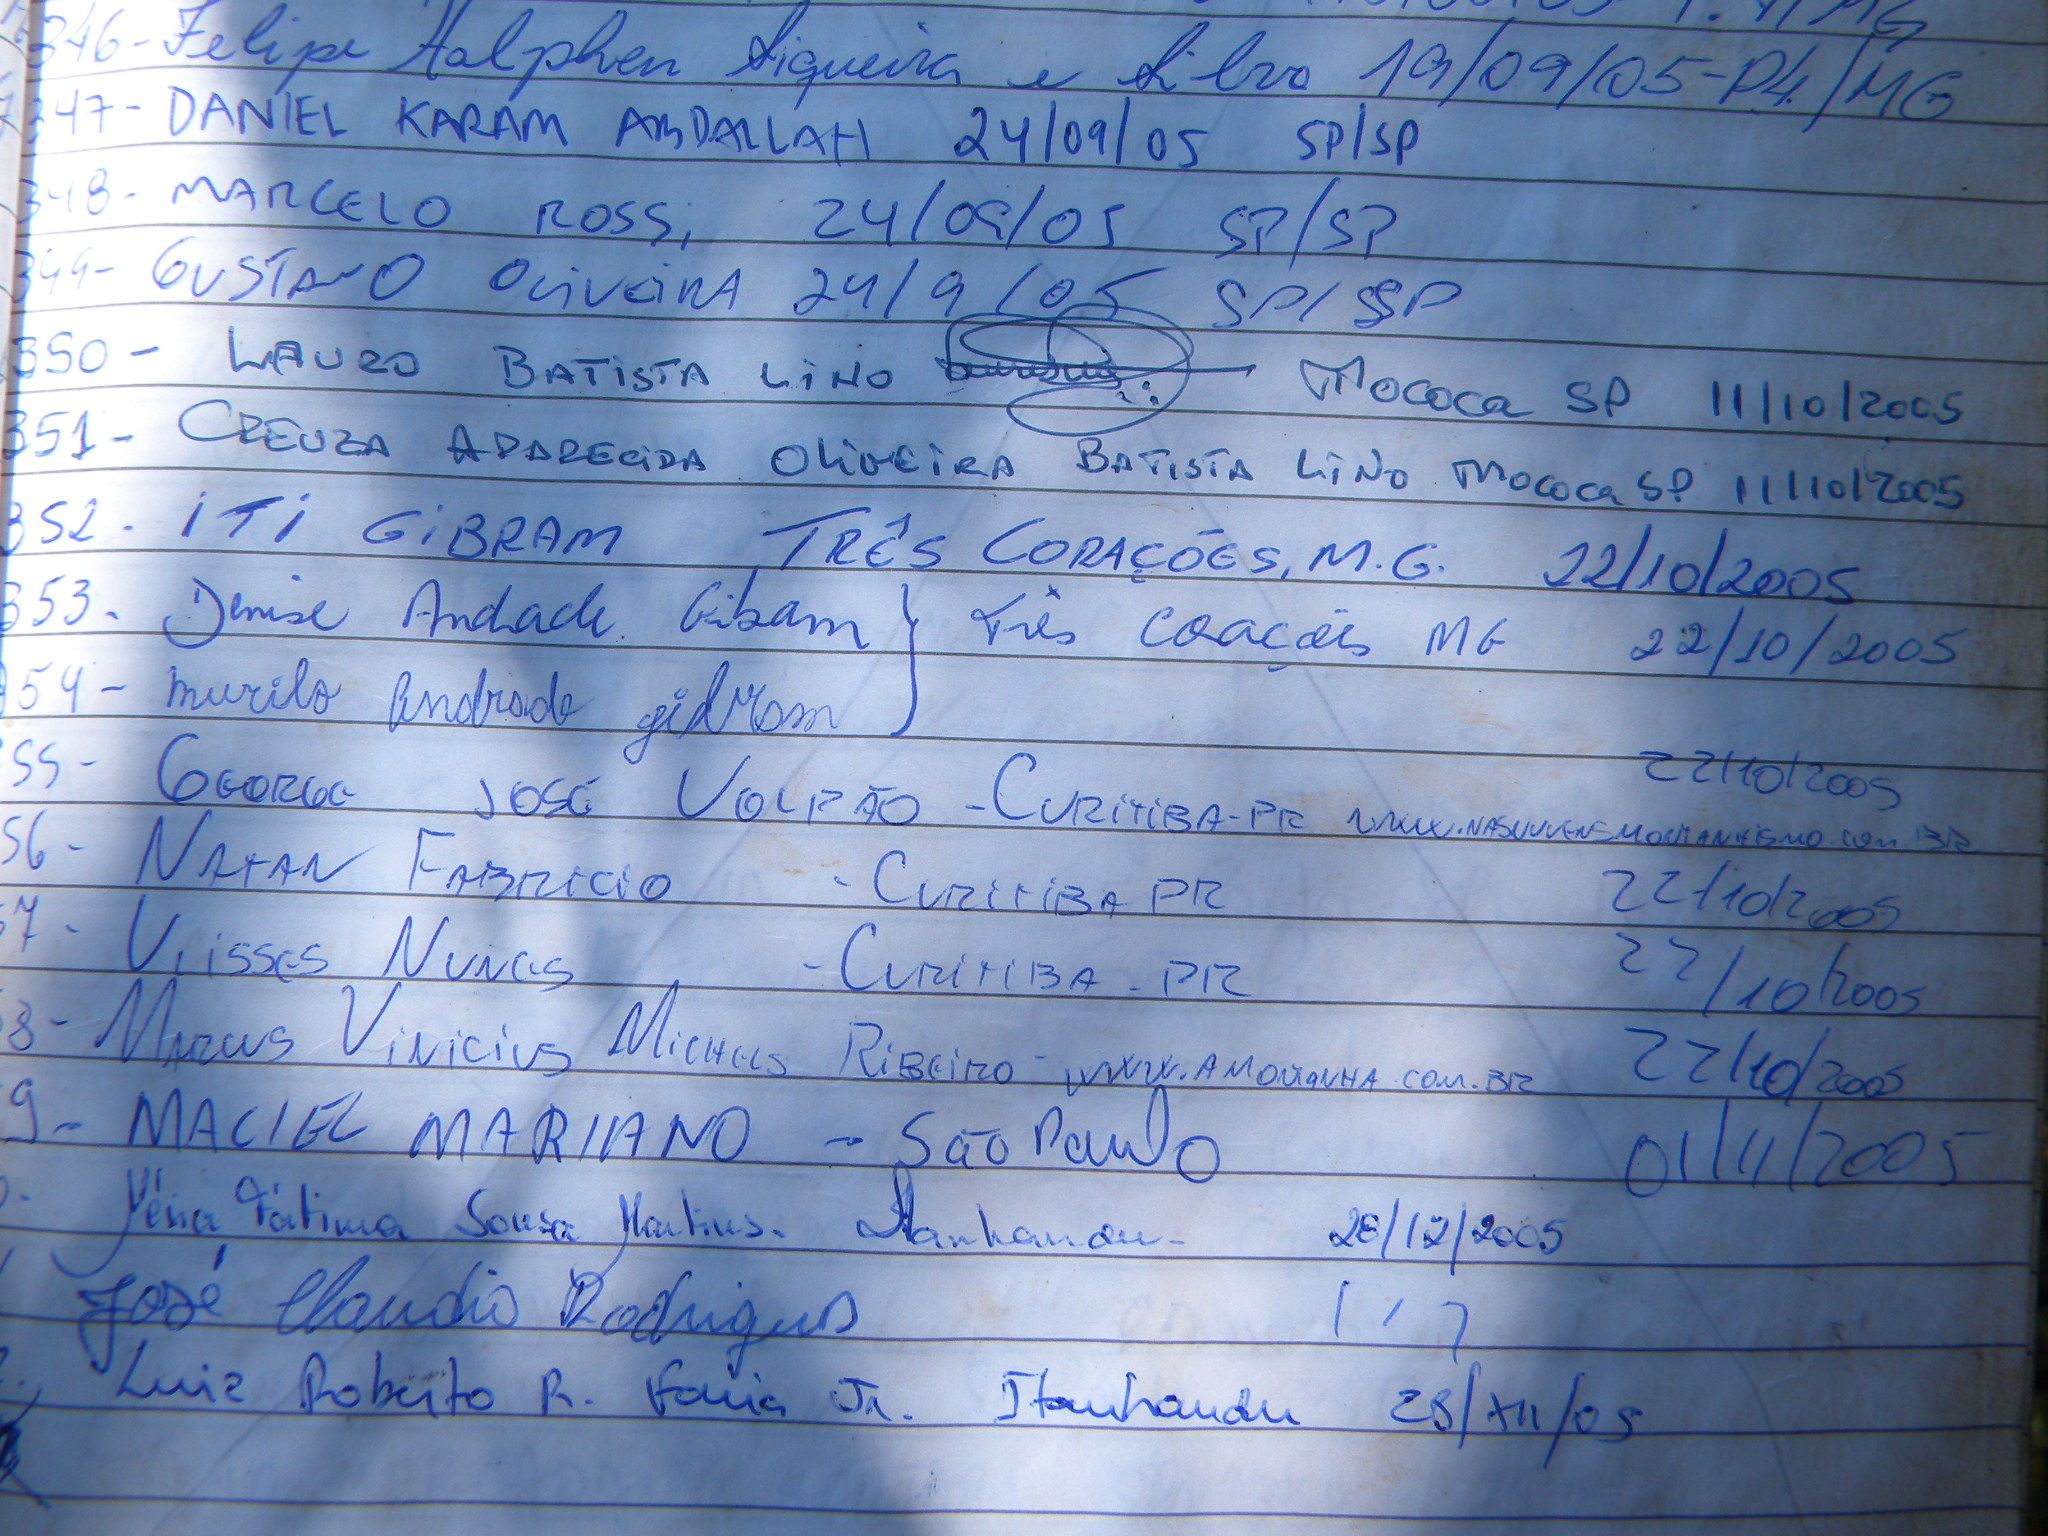 346- Felipe Siqueira e Silva 19/09/05-P4./MG
347- DANIEL KARAM ABDALLAH 24/09/05 SP/SP
348- MARCELO ROSSi, 24/09/05 SP/SP
349- GUSTAVO OLIVEIRA 24/9/05 SP/SP
350- LAURO BATISTA LINO Mococa SP 11/10/2005
351- CREUZA APARECIDA OLIVEIRA BATISTA LINO Mococa SP 11/10/2005
352- iTi GiBRAM TRÊS CORAÇÕES, M.G. 22/10/2005
353- Denise Andrade Gibram } Três Corações MG 22/10/2005
354- murilo Andrade gibram
22/10/2005
55- GEORGE JOSÉ VOLPÃO - CURITIBA-PR www.NASNUVENSMONTANHISMO.COM.BR
56- NATAN FABRICIO - CURITIBA PR 22/10/2005
57- ULISSES NUNES - CURITIBA - PR 22/10/2005
8- MARCUS VINICIUS MICHELS RIBEIRO - WWW.AMONTANHA.COM.BR 22/10/2005
9- MACIEL MARIANO - São Paulo 01/11/2005
Fátima Sousa Martins. Itanhandu - 28/12/2005
José Claudio Rodrigues
Luiz Roberto R. Faria Jr. Itanhandu 28/XII/05